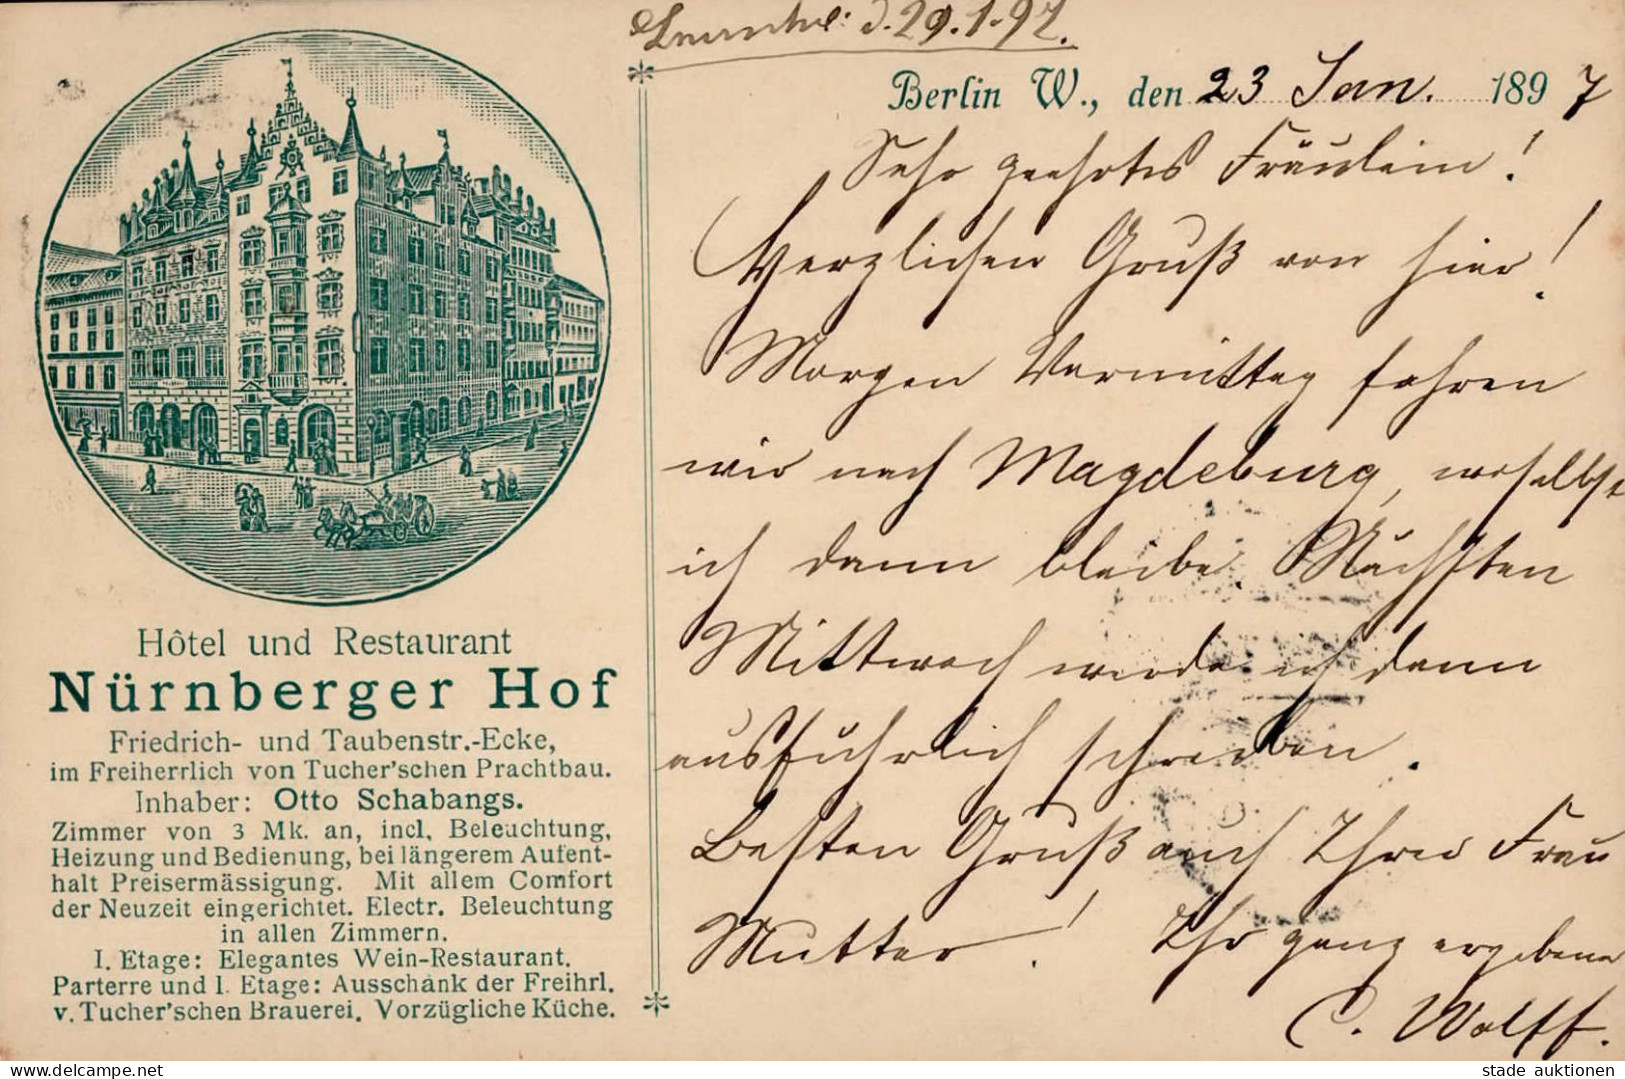 d. 29.1.97.
Berlin W., den 23 Jan. 1897
Sehr geehrtes Fräulein!
Herzlichen Gruß von hier!
Morgen Vormittag fahren
wir nach Magdeburg, woselbst
ich dann bleibe. Nächsten
Mittwoch werde ich dann
ausführlich schreiben.
Besten Gruß auch Ihrer Frau
Mutter! Ihr ganz ergebener
C. Wolff.
Hôtel und Restaurant
Nürnberger Hof
Friedrich- und Taubenstr.-Ecke,
im Freiherrlich von Tucher'schen Prachtbau.
Inhaber: Otto Schabangs.
Zimmer von 3 Mk. an, incl. Beleuchtung,
Heizung und Bedienung, bei längerem Aufent-
halt Preisermässigung. Mit allem Comfort
der Neuzeit eingerichtet. Electr. Beleuchtung
in allen Zimmern.
I. Etage: Elegantes Wein-Restaurant.
Parterre und I. Etage: Ausschank der Freihrl.
v. Tucher'schen Brauerei. Vorzügliche Küche.
delcampe.net
stade auktionen